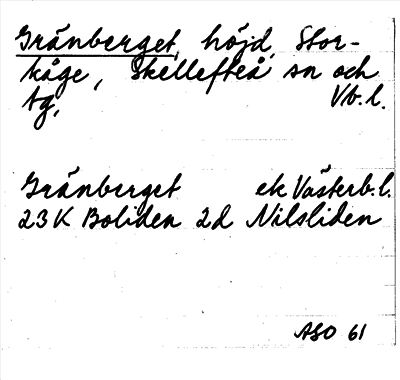 Gränberget, höjd, Stor-
kåge, Skellefteå sn och
tg, Vb.l.
Gränberget ek Västerb.l.
23K Boliden 2d Nilsliden
ASO 61